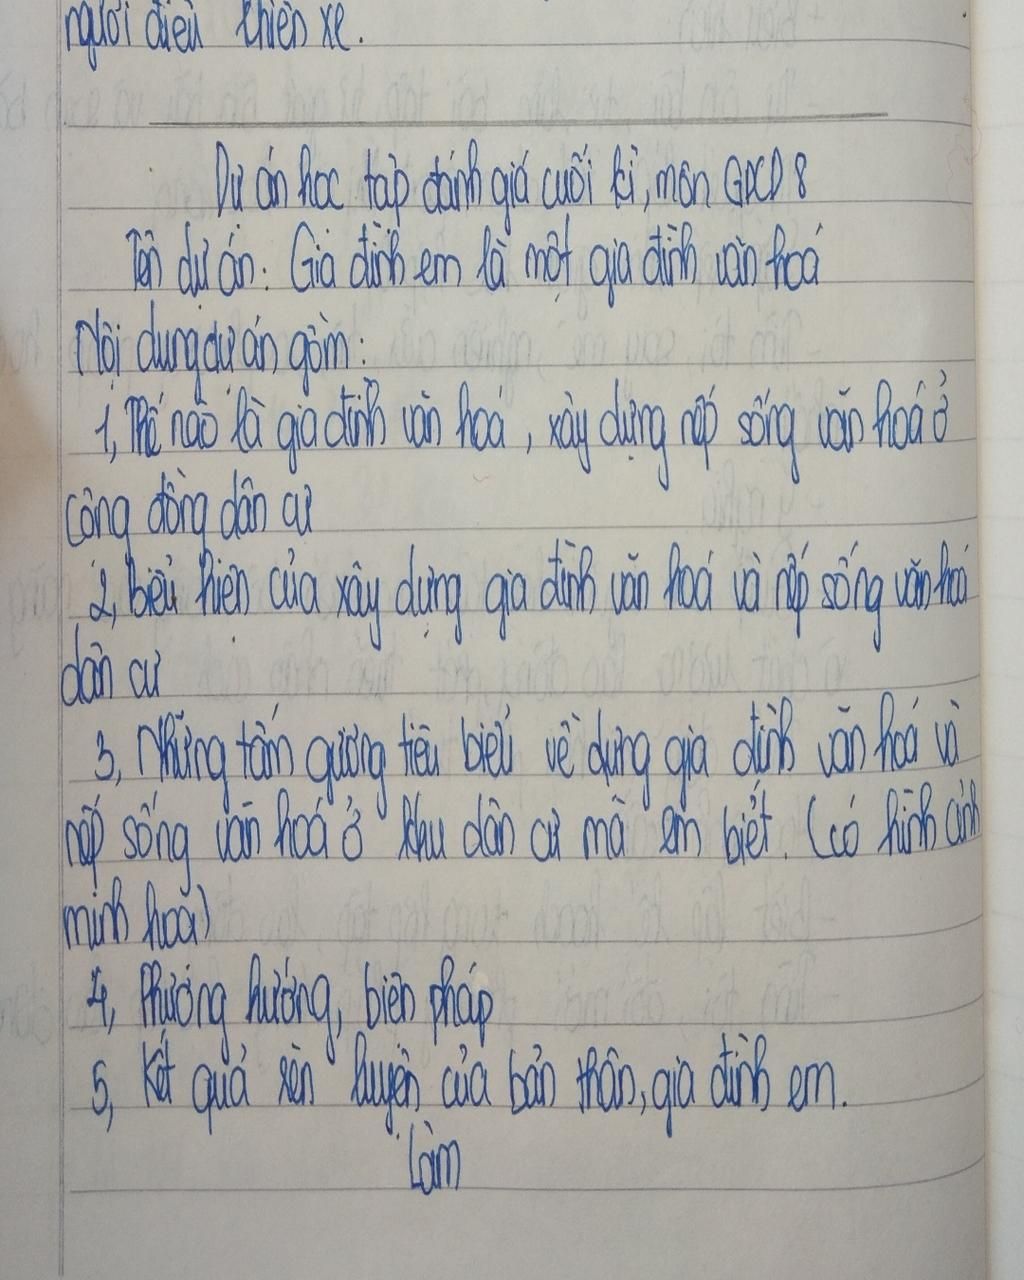 người điều khiển xe.
Dự án học tập đánh giá cuối kì, môn GDCD 8
Tên dự án: Gia đình em là một gia đình văn hoá
Nội dung dự án gồm:
1, Thế nào là gia đình văn hoá, xây dựng nếp sống văn hoá ở
cộng đồng dân cư
2, biểu hiện của xây dựng gia đình văn hoá và nếp sống văn hoá
dân cư
3, Những tấm gương tiêu biểu về dựng gia đình văn hoá và
nếp sống văn hoá ở khu dân cư mà em biết. (có hình ảnh
minh hoạ)
4, Phương hướng, biện pháp
5, Kết quả rèn luyện của bản thân, gia đình em.
Làm